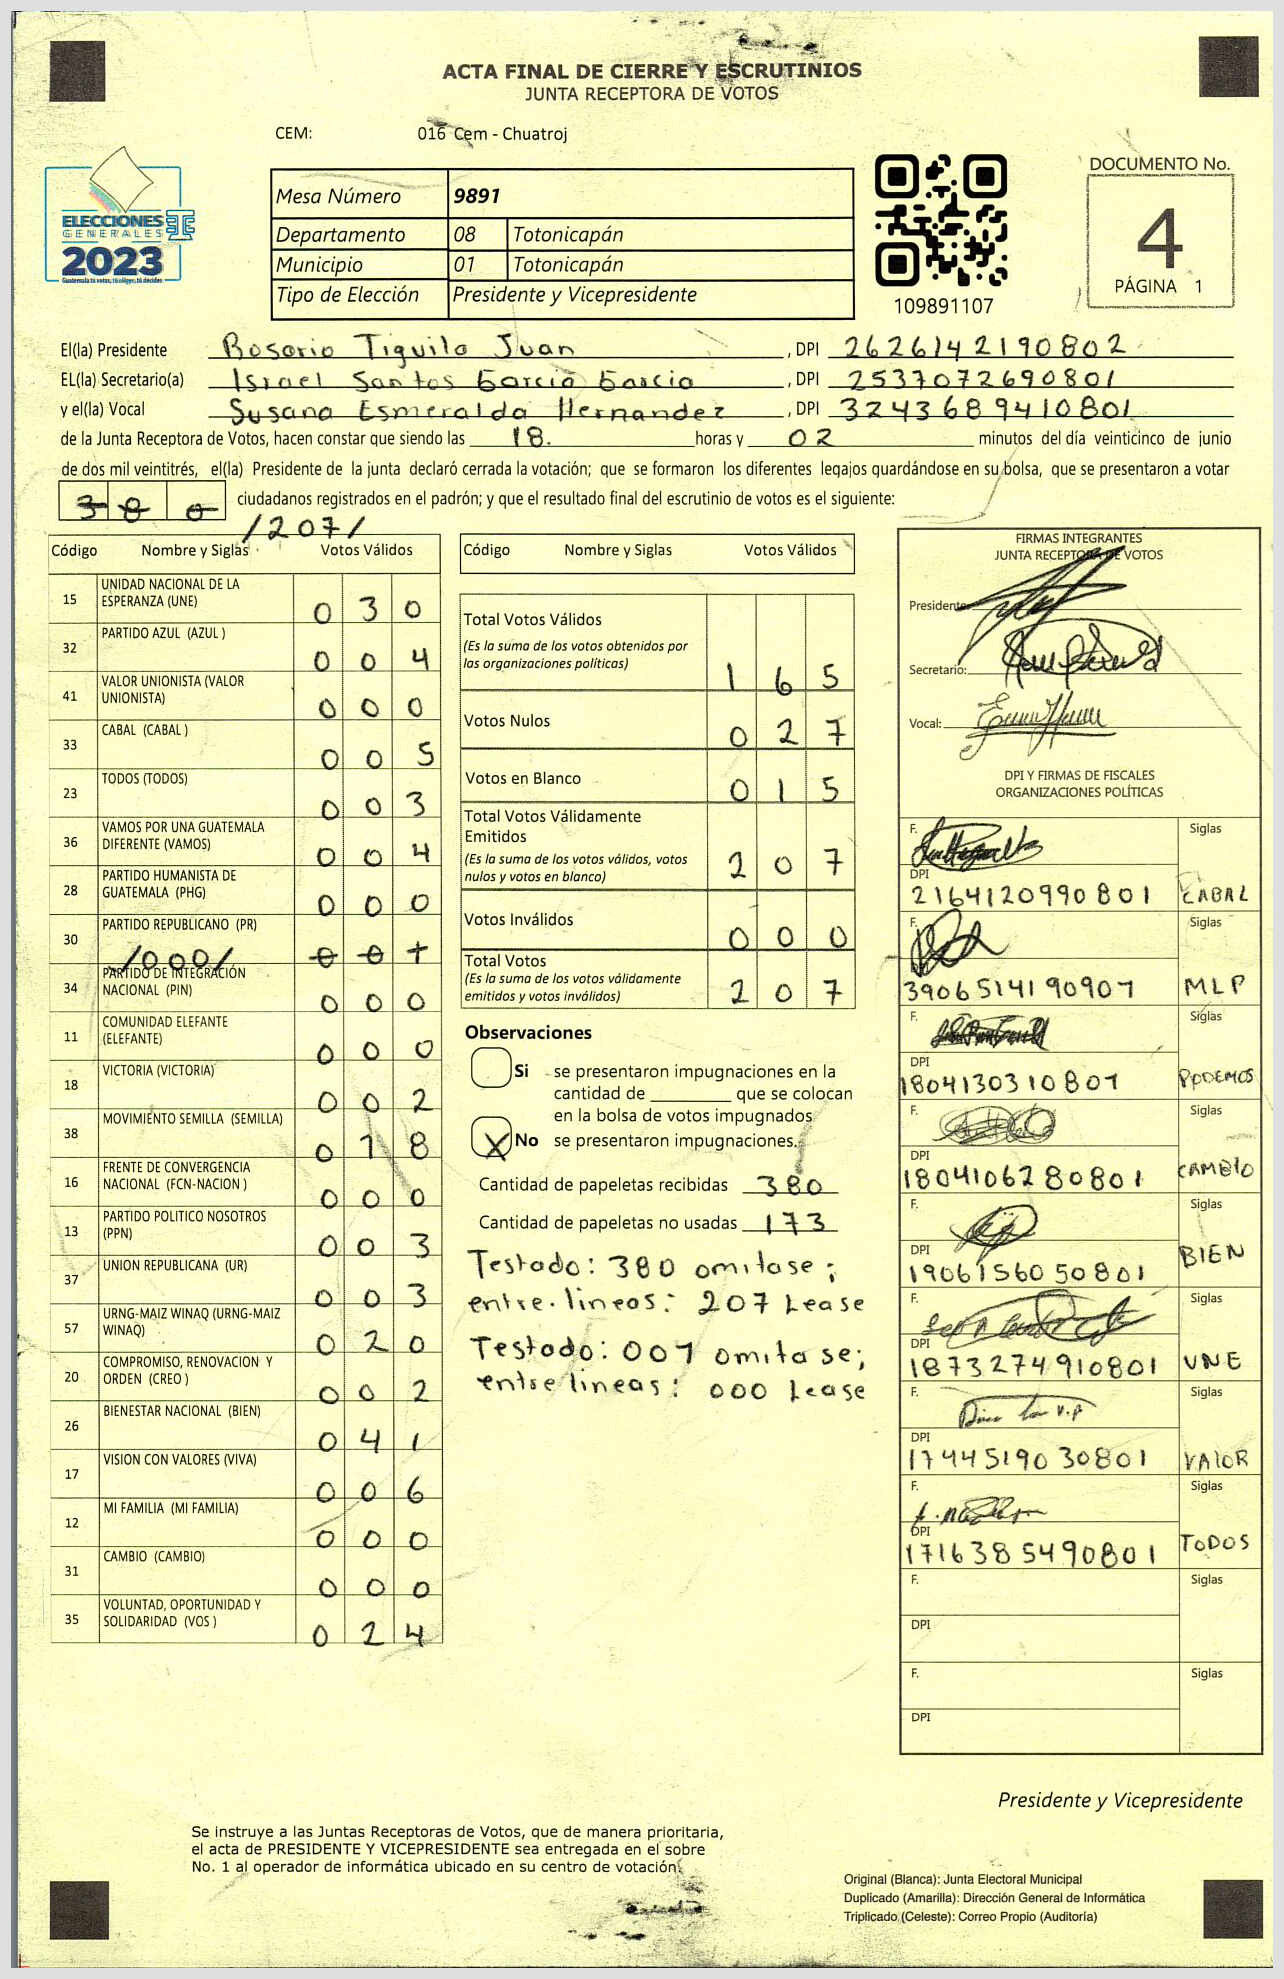 ACTA FINAL DE CIERRE Y ESCRUTINIOS
JUNTA RECEPTORA DE VOTOS
CEM: 016 Cem - Chuatroj
ELECCIONES
GENERALES
2023
Mesa Número 9891
Departamento 08 Totonicapán
Municipio 01 Totonicapán
Tipo de Elección Presidente y Vicepresidente
109891107
DOCUMENTO No.
4
PÁGINA 1
El(la) Presidente Rosario Tiguila Juan, DPI 2626142190802
EL(la) Secretario(a) Israel Santos Garcia Garcia, DPI 2537072690801
y el(la) Vocal Susana Esmeralda Hernandez, DPI 3243689410801
de la Junta Receptora de Votos, hacen constar que siendo las 18. horas y 02 minutos del día veinticinco de junio
de dos mil veintitrés, el(la) Presidente de la junta declaró cerrada la votación; que se formaron los diferentes legajos guardándose en su bolsa, que se presentaron a votar
380 ciudadanos registrados en el padrón; y que el resultado final del escrutinio de votos es el siguiente:
/207/
Código Nombre y Siglas Votos Válidos
15 UNIDAD NACIONAL DE LA
ESPERANZA (UNE) 030
32 PARTIDO AZUL (AZUL ) 004
41 VALOR UNIONISTA (VALOR
UNIONISTA) 000
33 CABAL (CABAL ) 005
23 TODOS (TODOS) 003
36 VAMOS POR UNA GUATEMALA
DIFERENTE (VAMOS) 004
28 PARTIDO HUMANISTA DE
GUATEMALA (PHG) 000
30 PARTIDO REPUBLICANO (PR) 001
/000/
34 PARTIDO DE INTEGRACIÓN
NACIONAL (PIN) 000
11 COMUNIDAD ELEFANTE
(ELEFANTE) 000
18 VICTORIA (VICTORIA) 002
38 MOVIMIENTO SEMILLA (SEMILLA) 018
16 FRENTE DE CONVERGENCIA
NACIONAL (FCN-NACION ) 000
13 PARTIDO POLITICO NOSOTROS
(PPN) 003
37 UNION REPUBLICANA (UR) 003
57 URNG-MAIZ WINAQ (URNG-MAIZ
WINAQ) 020
20 COMPROMISO, RENOVACION Y
ORDEN (CREO ) 002
26 BIENESTAR NACIONAL (BIEN) 041
17 VISION CON VALORES (VIVA) 006
12 MI FAMILIA (MI FAMILIA) 000
31 CAMBIO (CAMBIO) 000
35 VOLUNTAD, OPORTUNIDAD Y
SOLIDARIDAD (VOS ) 024
Código Nombre y Siglas Votos Válidos
Total Votos Válidos
(Es la suma de los votos obtenidos por
las organizaciones políticas) 165
Votos Nulos 027
Votos en Blanco 015
Total Votos Válidamente
Emitidos
(Es la suma de los votos válidos, votos
nulos y votos en blanco) 207
Votos Inválidos 000
Total Votos
(Es la suma de los votos válidamente
emitidos y votos inválidos) 207
Observaciones
Si se presentaron impugnaciones en la
cantidad de ________ que se colocan
en la bolsa de votos impugnados
X No se presentaron impugnaciones.
Cantidad de papeletas recibidas 380
Cantidad de papeletas no usadas 173
Testado: 380 omitase;
entre.lineas: 207 Lease
Testado: 001 omitase;
entre lineas: 000 Lease
FIRMAS INTEGRANTES
JUNTA RECEPTORA DE VOTOS
Presidente:
Secretario:
Vocal:
DPI Y FIRMAS DE FISCALES
ORGANIZACIONES POLÍTICAS
F. Siglas
DPI
2164120990801 CABAL
F. Siglas
DPI
3906514190907 MLP
F. Siglas
DPI
1804130310801 PODEMOS
F. Siglas
DPI
1804106280801 CAMBIO
F. Siglas
DPI
1906156050801 BIEN
F. Siglas
DPI
1873274910801 UNE
F. Siglas
DPI
1744519030801 VALOR
F. Siglas
DPI
1716385490801 TODOS
F. Siglas
DPI
F. Siglas
DPI
Presidente y Vicepresidente
Se instruye a las Juntas Receptoras de Votos, que de manera prioritaria,
el acta de PRESIDENTE Y VICEPRESIDENTE sea entregada en el sobre
No. 1 al operador de informática ubicado en su centro de votación.
Original (Blanca): Junta Electoral Municipal
Duplicado (Amarilla): Dirección General de Informática
Triplicado (Celeste): Correo Propio (Auditoría)